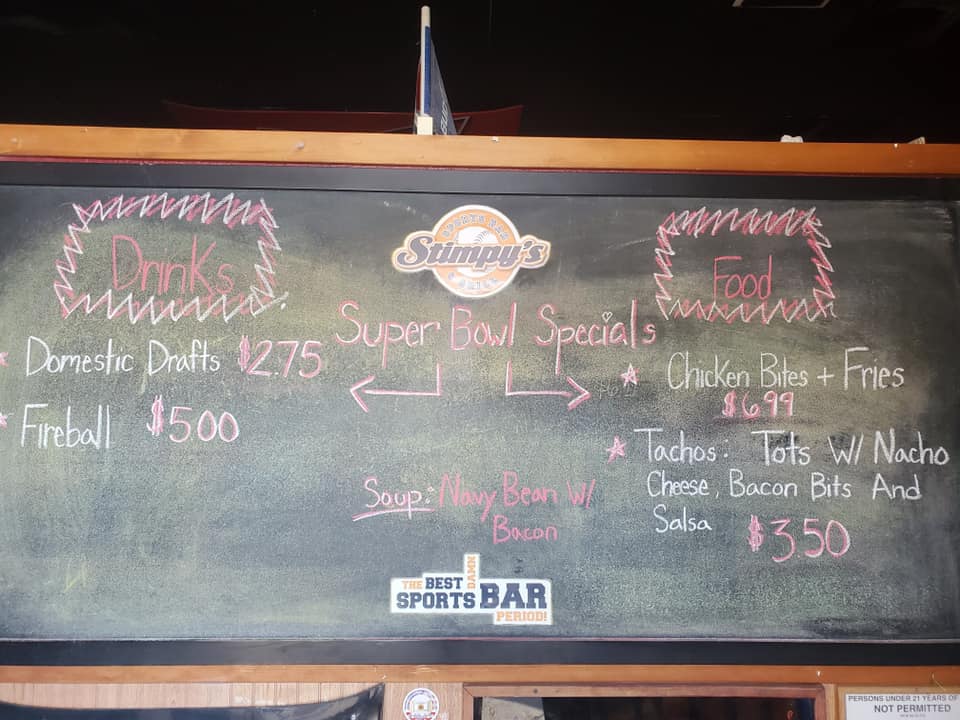 Drinks
Domestic Drafts $2.75
Fireball $5.00
SPORTS BAR
Stimpy's
Super Bowl Specials
Soup: Navy Bean W/
Bacon
THE BEST DAMN
SPORTS BAR
PERIOD!
Food
Chicken Bites + Fries
$6.99
Tachos: Tots W/ Nacho
Cheese, Bacon Bits And
Salsa $3.50
PERSONS UNDER 21 YEARS OF
NOT PERMITTED